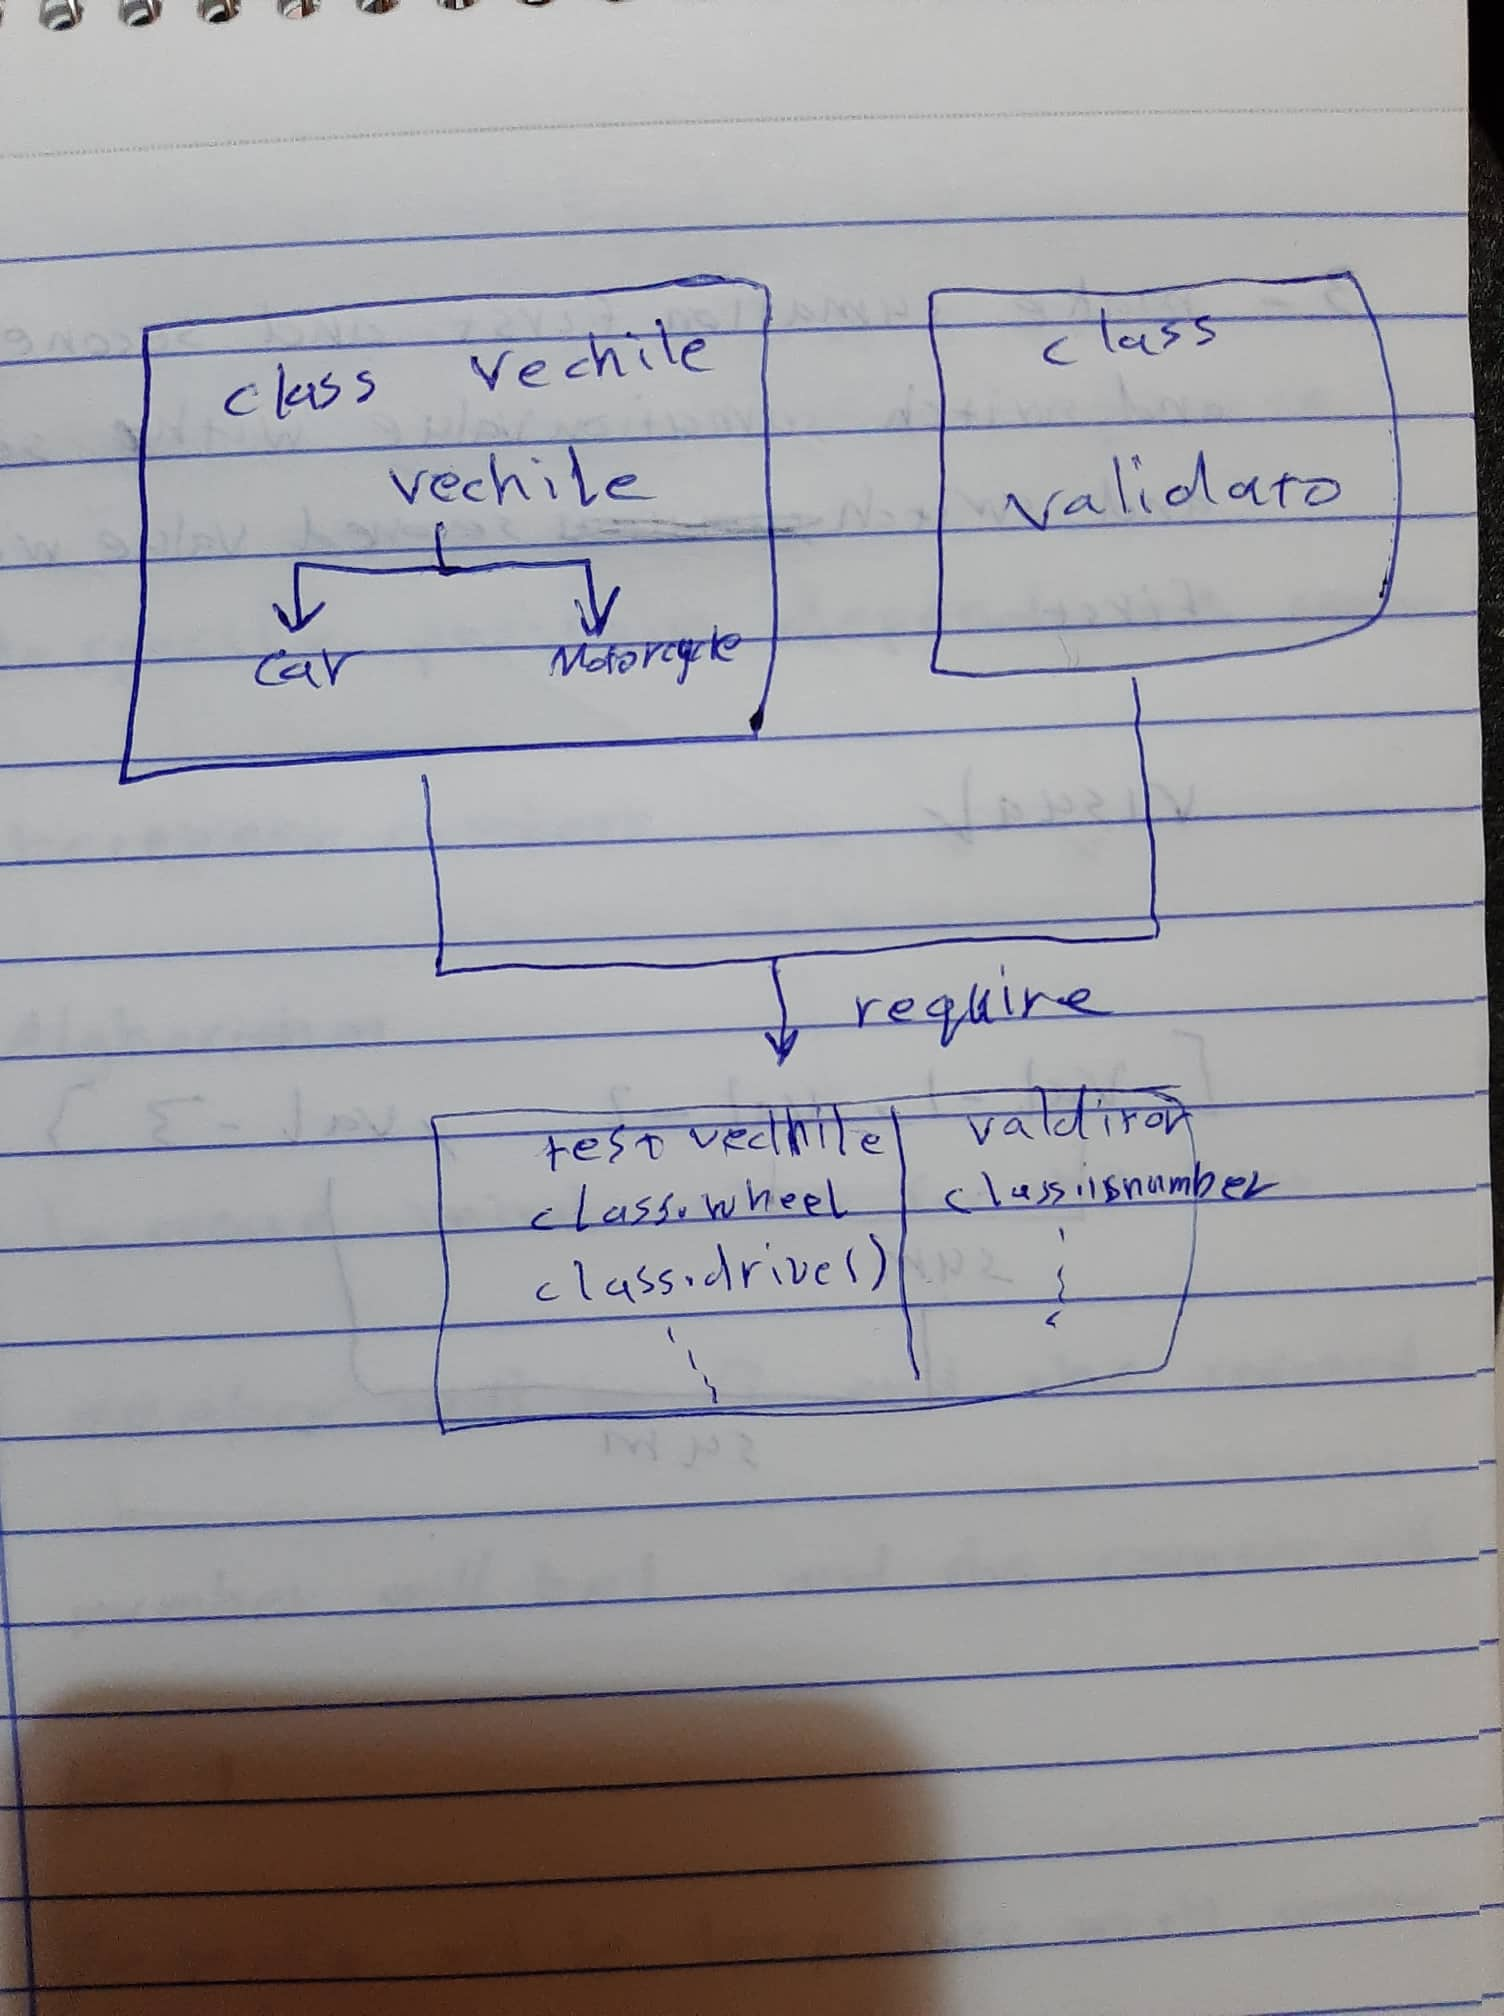 class vechile
vechile
car
Motorcycle
class
validato
require
test vechile
class.wheel
class.drive()
valdiror
class.isnumber